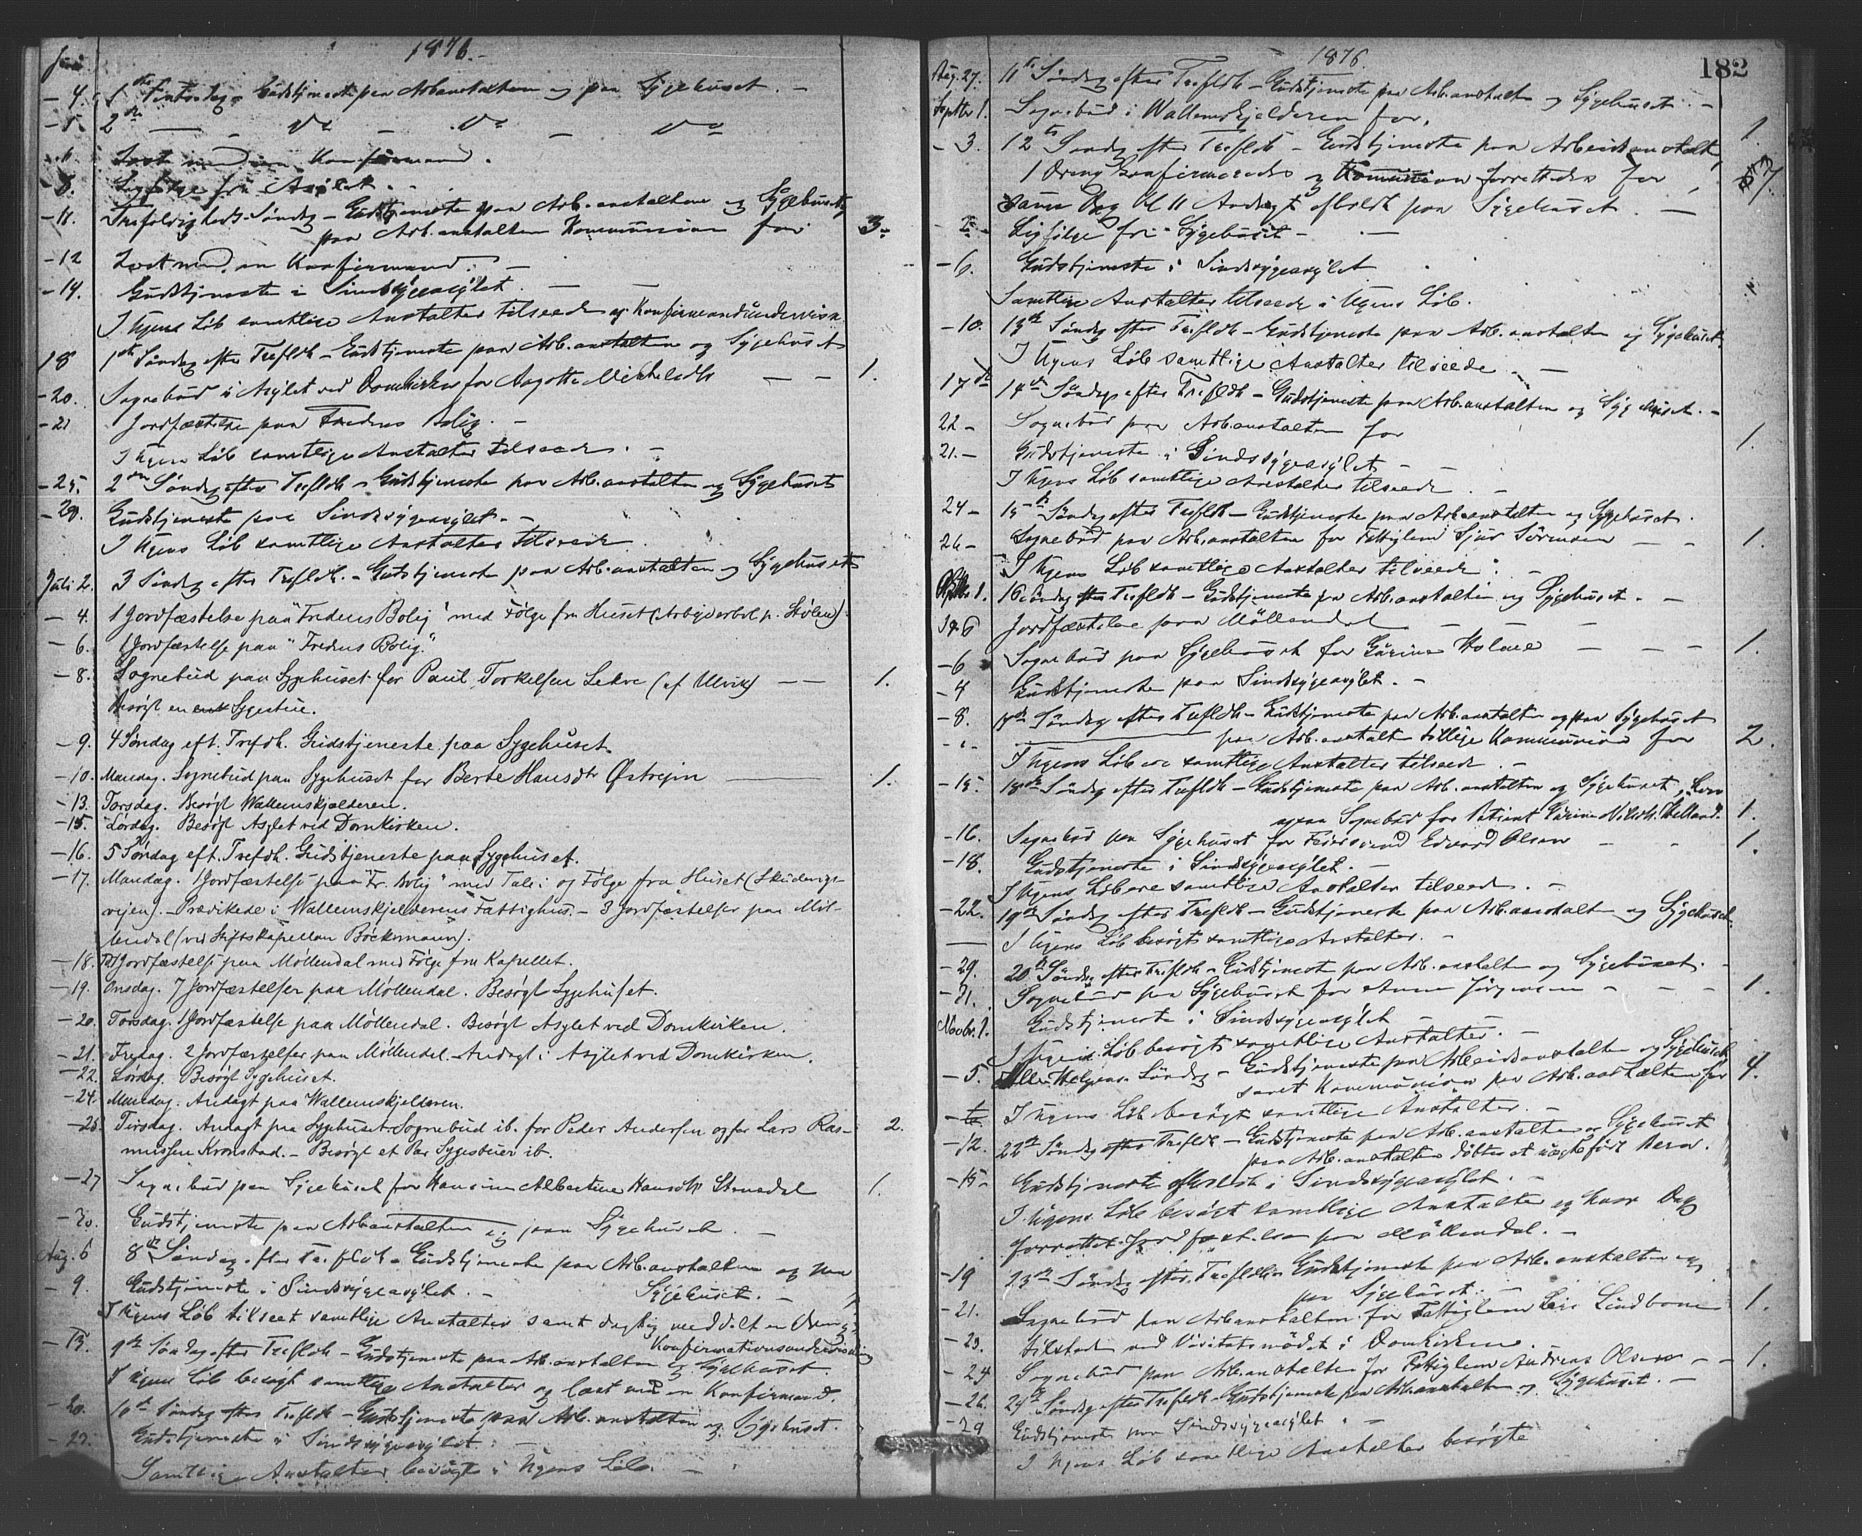 Juni 1876.
- 4. 1ste Pintsedag. Gudstjeneste paa Arb.anstalten og paa Sygehuset. -
- 5. 2den — - Do - Do - Do
- 6. Læst med en Konfirmand.
- 8. Ligfølge fra Asylet. -
- 11. Trefoldigheds Søndag - Gudstjeneste paa Arb.anstalten og Sygehuset,
paa Arb.anstalten Kommunion for 3.
- 12 Læst med en Konfirmand. -
- 14. Gudstjeneste i Sindsygeasylet. -
I Ugens Løb samtlige Anstalter tilseede og Konfirmandundervisn.
18 1ste Søndag efter Trefldh - Gudstjeneste paa Arb.anstalten og Sygehuset
- 20. Sognebud i Asylet ved Domkirken for Aagotte Mikkelsdt - - 1.
- 21 Jordfæstelse paa Fredens Bolig. -
I Ugens Løb samtlige Anstalter tilseede. -
- 25. 2den Søndag efter Trefldh - Gudstjeneste paa Arb.anstalten og Sygehuset
- 29. Gudstjeneste paa Sindssygeasylet. -
I Ugens Løb samtlige Anstalter tilseede.
Juli 2. 3 Søndag efter Trefldh. - Gudstjeneste paa Arb.anstalten og Sygehuset
- 4. 1 Jordfæstelse paa "Fredens Bolig" med Følge fra Huset (Arbeiderbol. p. Stølen).
- 6. 1 Jordfæstelse paa "Fredens Bolig".
- 8. Sognebud paa Sygehuset for Paul Torkelsen Lekve (af Ulvik) - - 1.
Besøgt en Sygestue.
- 9. 4 Søndag eft. Trefdh. Gudstjeneste paa Sygehuset.
- 10. Mandag. Sognebud paa Sygehuset for Berte Hansdtr Østreim — 1.
- 13. Torsdag. Besøgt Wallemskjælderen.
- 15. Lørdag. Besøgt Asylet ved Domkirken.
- 16. 5 Søndag eft. Trefdh. Gudstjeneste paa Sygehuset.
- 17. Mandag. 1 Jordfæstelse paa "Fr. Bolig" med Tale i og Følge fra Huset (Skudevigs-
veien). - Prædikede i Wallemskjelderens Fattighus. - 3 Jordfæstelser paa Møl-
lendal (ved Stiftskapellan Böckmann).
- 18. 1 Jordfæstelse paa Møllendal med Følge fra Kapellet.
- 19. Onsdag. 7 Jordfæstelser paa Møllendal. Besøgt Sygehuset.
- 20. Torsdag. 1 Jordfæstelse paa Møllendal. Besøgt Asylet ved Domkirken.
- 21. Fredag. 2 Jordfæstelser paa Møllendal. Andagt i Asylet ved Domkirken.
- 22. Lørdag. Besøgt Sygehuset.
- 24. Mandag. Andagt paa Wallemskjelderen.
- 25. Tirsdag. Andagt paa Sygehuset. Sognebud ib. for Peder Andersen og for Lars Ras- 2.
mussen Kronstad. - Besøgt et Par Sygestuer ib.
- 27 Sognebud paa Sygehuset for Hansine Albertine Hansdt Stensdal 1.
- 30. Gudstjeneste paa Arb.anstalten og paa Sygehuset. -
Aug. 6 8de Søndag efter Trefldh - Gudstjeneste paa Arb.anstalten og paa
Sygehuset. -
- 9. Gudstjeneste i Sindssygeasylet. -
I Ugens Løb tilseet samtlige Anstalter samt daglig meddelt en Dreng
Konfirmationsundervisning
- 13. 9de Søndag efter Trefldh - Gudstjeneste paa Arb.anstalten og Sygehuset.
I Ugens Løb besøgt samtlige Anstalter og læst med en Konfirmand.
- 20. 10de Søndag efter Trefldh - Gudstjeneste paa Arb.anstalten og Sygehuset.
- 23. Gudstjeneste i Sindssygeasylet. -
Samtlige Anstalter besøgte i Ugens Løb. -
1876. 182
Aug. 27. 11te Søndag efter Trefldh - Gudstjeneste paa Arb.anstalten og Sygehuset. -
Septbr 1. Sognebud i Wallemskjelderen for 1.
- 3. 12te Søndag efter Trefldh - Gudstjeneste paa Arbeidsanstalten,
1 Dreng konfirmeredes og Kommunion forrettedes for 7.
samme Dag Kl 11 Andagt afholdt paa Sygehuset. -
Ligfølge fra Sygehuset - -
- 6. Gudstjeneste i Sindssygeasylet
Samtlige Anstalter tilseede i Ugens Løb.
- 10. 13de Søndag efter Trefldh - Gudstjeneste paa Arb.anstalten og Sygehuset.
I Ugens Løb samtlige Anstalter tilseede -
17de 14de Søndag efter Trefldh - Gudstjeneste paa Arb.anstalten og Sygehuset. -
22 - Sognebud paa Arb.anstalten for 1.
21. - Gudstjeneste i Sindssygeasylet - -
I Ugens Løb samtlige Anstalter tilseede -
24 - 15de Søndag efter Trefldh - Gudstjeneste paa Arb.anstalten og Sygehuset.
26 - Sognebud paa Arb.anstalten for Fattiglem Sjur Sörensen - - 1.
I Ugens Løb samtlige Anstalter tilseede. -
1. 16 Søndag efter Trefldh - Gudstjeneste paa Arb.anstalten og Sygehuset. -
Jordfæstelse paa Möllendal - - -
- 6 Sognebud paa Sygehuset for Gurine Holme - - - 1.
- 4 Gudstjeneste paa Sindssygeasylet. -
- 8. 17de Søndag efter Trefldh - Gudstjeneste paa Arb.anstalten og paa Sygehuset
paa Arb.anstalt tillige Kommunion for 2.
I Ugens Løb ere samtlige Anstalter tilseede. -
- 15. 18de Søndag efter Trefldh - Gudstjeneste paa Arb.anstalten og Sygehuset,
Sognebud for Patient 1.
- 16. Sognebud paa Sygehuset for Edvard Olsen - - 1.
- 18. Gudstjeneste i Sindssygeasylet. -
I Ugens Løb ere samtlige Anstalter tilseede. -
- 22. 19de Søndag efter Trefldh - Gudstjeneste paa Arb.anstalten og Sygehuset.
I Ugens Løb besøgt samtlige Anstalter. -
- 29. 20de Søndag efter Trefldh - Gudstjeneste paa Arb.anstalten og Sygehuset. -
- 31. Sognebud paa Sygehuset for Anne Jörgensen - - - 1.
Novbr. 1. Gudstjeneste i Sindssygeasylet - -
I Ugens Løb besøgt samtlige Anstalter. -
- 5. Alle Helgens Søndag - Gudstjeneste paa Arbeidsanstalten og Sygehuset
samt Kommunion paa Arb.anstalten for 4.
I Ugens Løb besøgt samtlige Anstalter. -
- 12. 22de Søndag efter Trefldh - Gudstjeneste paa Arb.anstalten og Sygehuset
paa Arb.anstalten döbtes et uægtefödt Barn.
- 15 - Gudstjeneste afholdt i Sindssygeasylet. -
I Ugens Løb besøgt samtlige Anstalter og hver Dag
forrettet Jordfæstelsen paa Möllendal. -
- 19 23de Søndag efter Trefldh - Gudstjeneste paa Arb.anstalten og
paa Sygehuset. -
- 21. Sognebud paa Arb.anstalten for Fattiglem Lindbom 1.
- 23. Tilstede ved Visitatsmødet i Domkirken.
- 24 Sognebud paa Arb.anstalten for Fattiglem Andreas Olsen - - 1.
- 26. 24de Søndag efter Trefldh - Gudstjeneste paa Arb.anstalten og Sygehuset. -
- 29 Gudstjeneste paa Sindssygeasylet. -
I Ugens Løb samtlige Anstalter besøgte